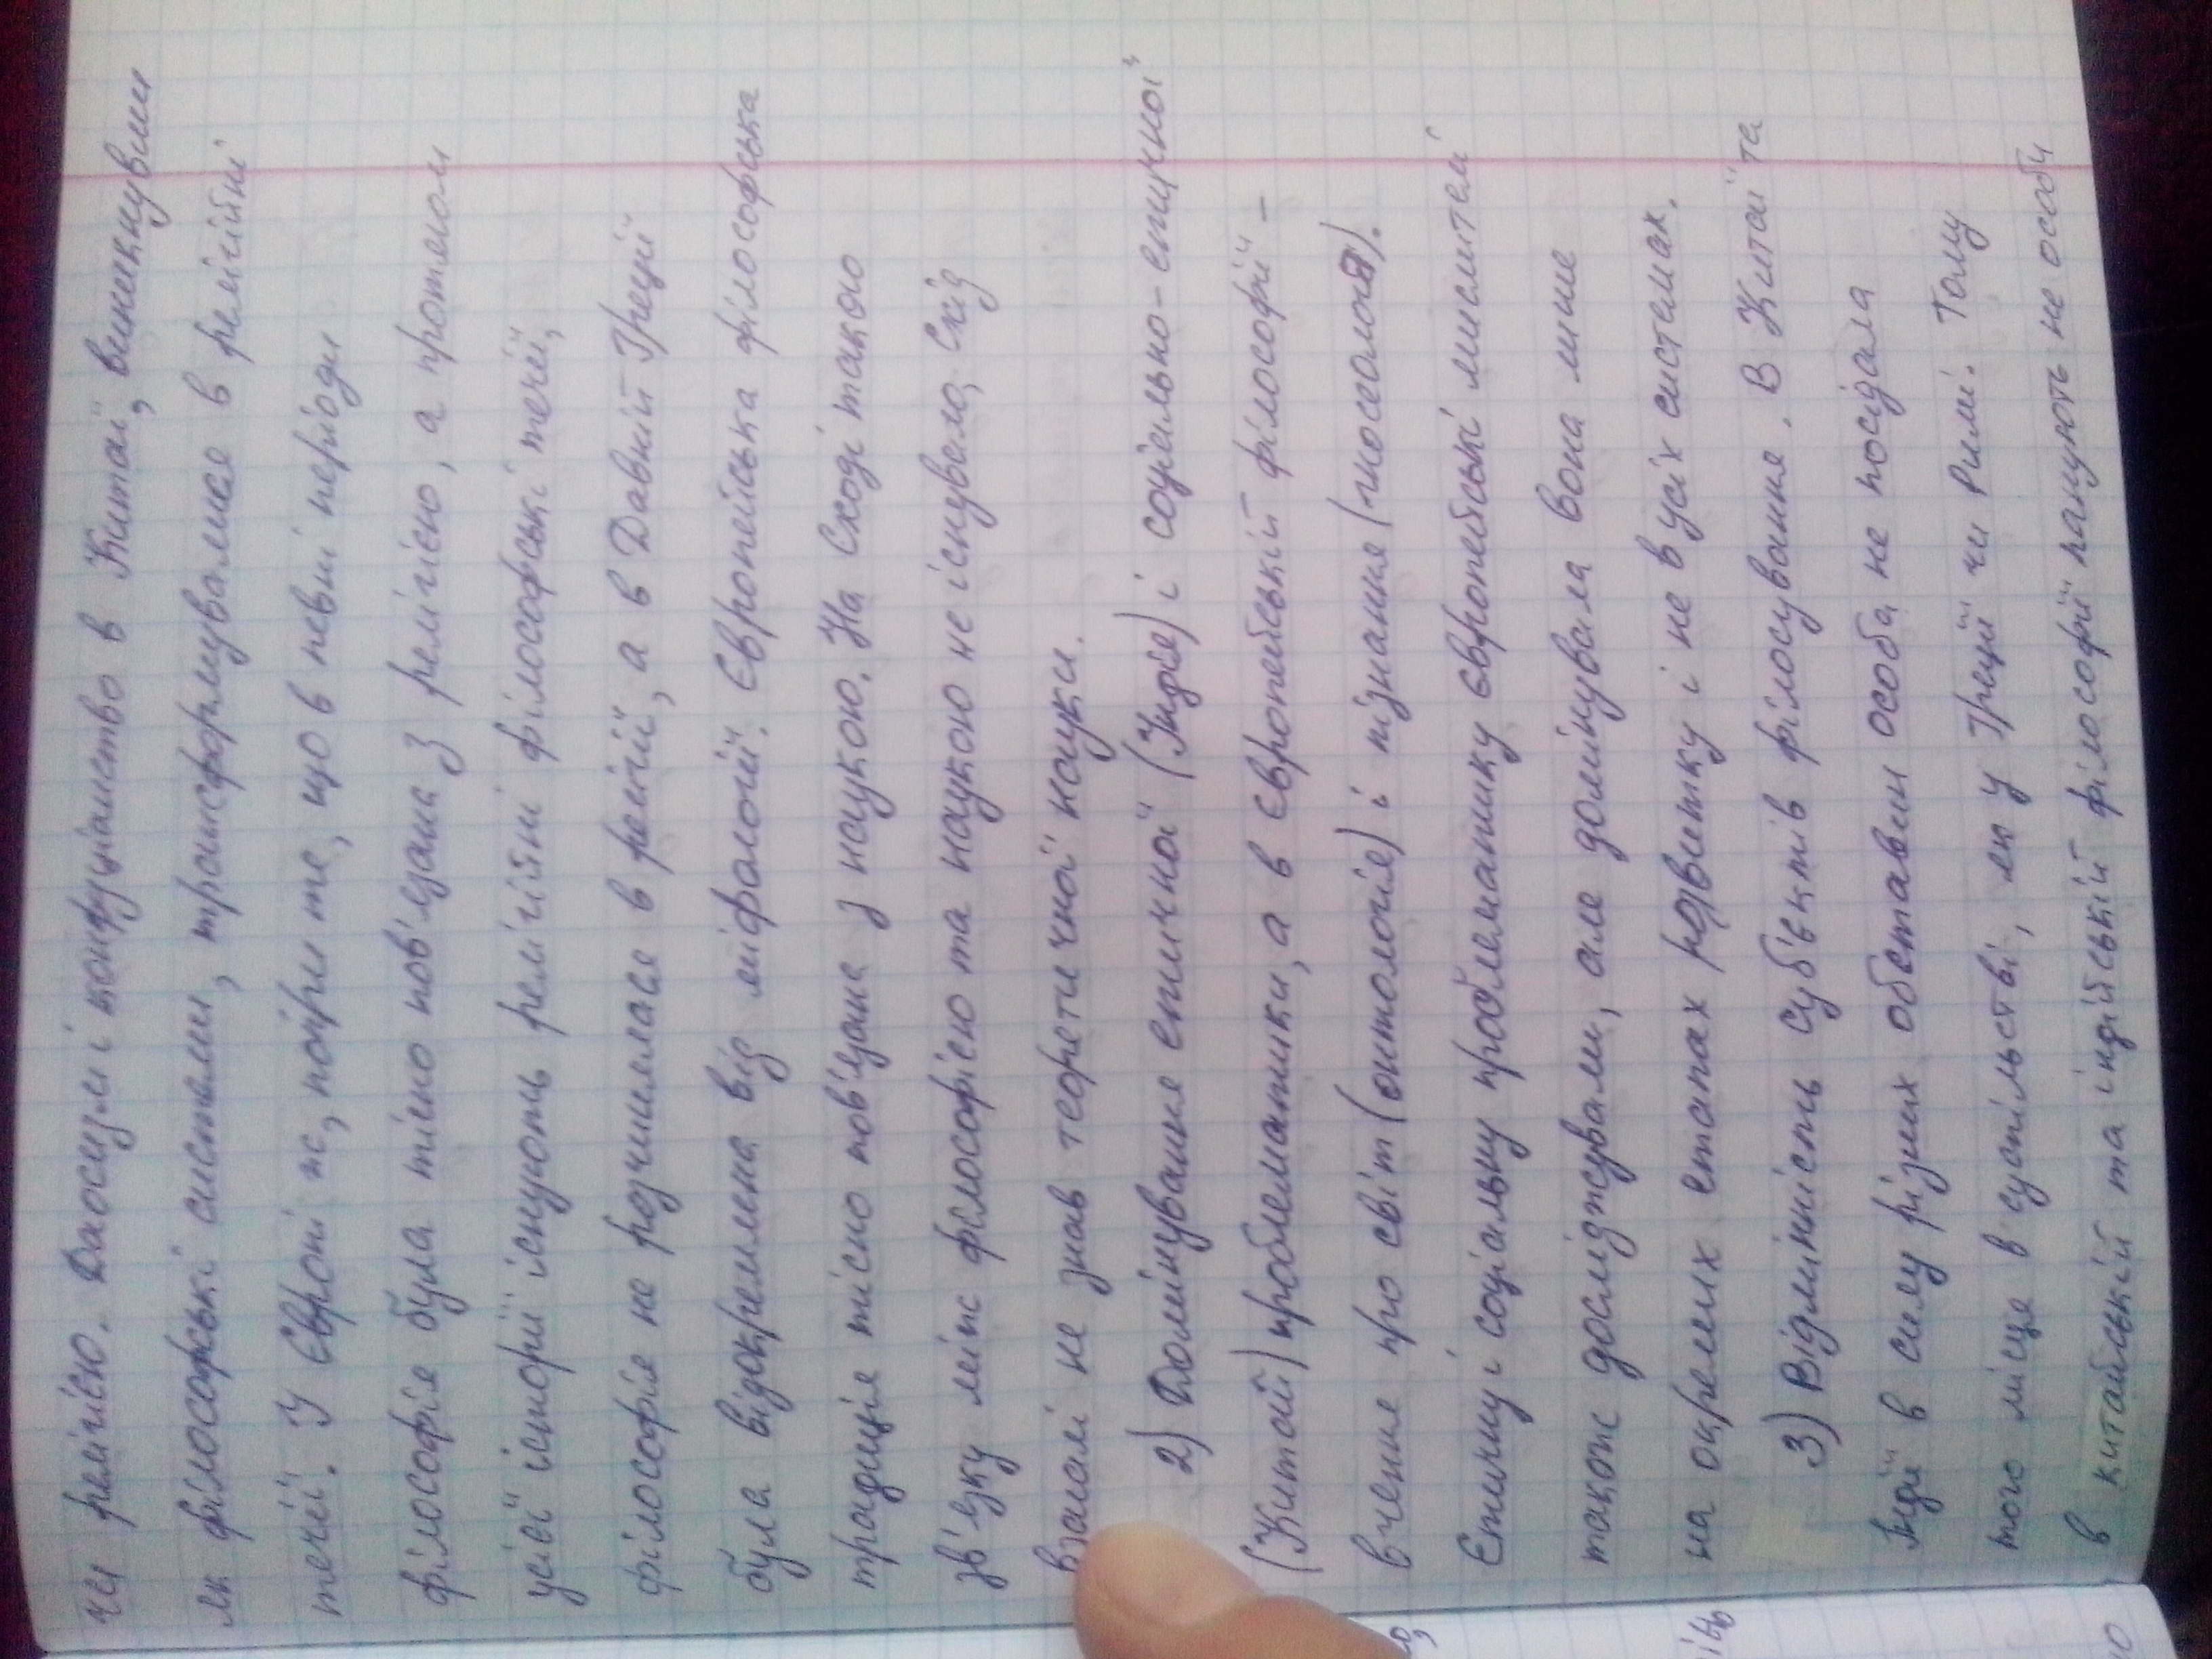 чи релігією. Даосизм і конфуціанство в Китаї, виникнувши
як філософські системи, трансформувалися в релігійні
течії. У Європі ж, попри те, що в певні періоди
філософія була тісно пов'язана з релігією, а протягом
усієї історії існують релігійні філософські течії,
філософія не розчинялася в релігії, а в Давній Греції
була відокремлена від міфології. Європейська філософська
традиція тісно пов'язана з наукою. На Сході такого
зв'язку між філософією та наукою не існувало, Схід
взагалі не знав теоретичної науки.
2) Домінування етичної (Індія) і соціально-етичної
(Китай) проблематики, а в європейській філософії -
вчення про світ (онтологія) і пізнання (гносеологія).
Етичну і соціальну проблематику європейські мислителі
також досліджували, але домінувала вона лише
на окремих етапах розвитку і не в усіх системах.
3) Відмінність суб'єктів філосування. В Китаї та
Індії в силу різних обставин особа не посідала
того місця в суспільстві, як у Греції чи Римі. Тому
в китайській та індійській філософії панують не особи